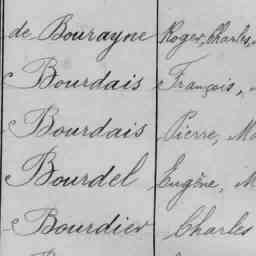 de Bourayne Roger, Charles,
Bourdais François,
Bourdais Pierre, Ma
Bourdel Eugène, M
Bourdier Charles